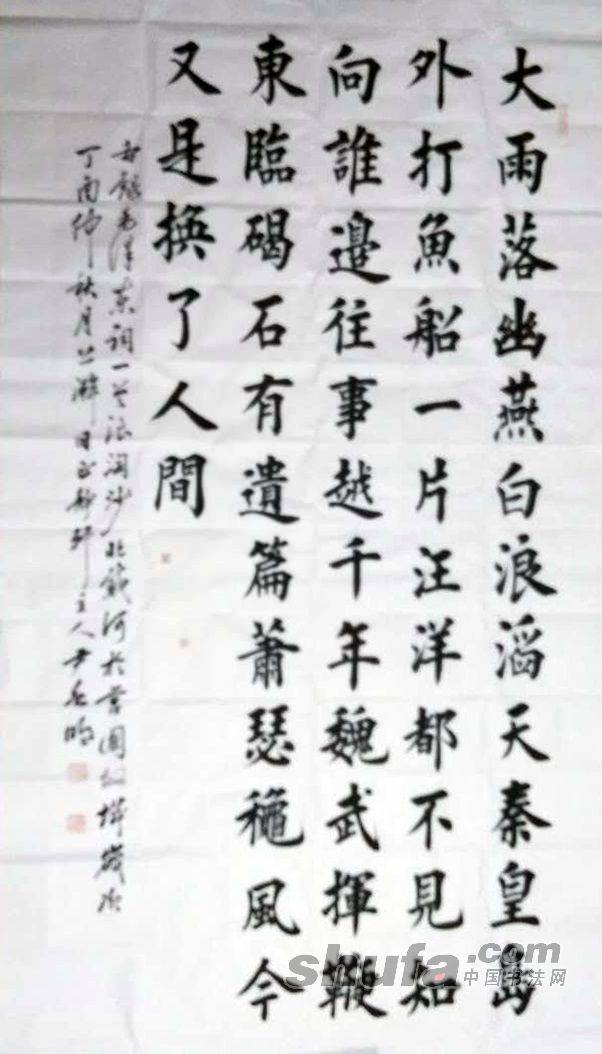 大雨落幽燕白浪滔天秦皇島
外打魚船一片汪洋都不見知
向誰邊往事越千年魏武揮鞭
東臨碣石有遺篇蕭瑟穐風今
又是换了人間
毛澤東詞一首浪淘沙北戴河於
丁酉仲秋月 日 主人尹
shufa.com
中国书法网